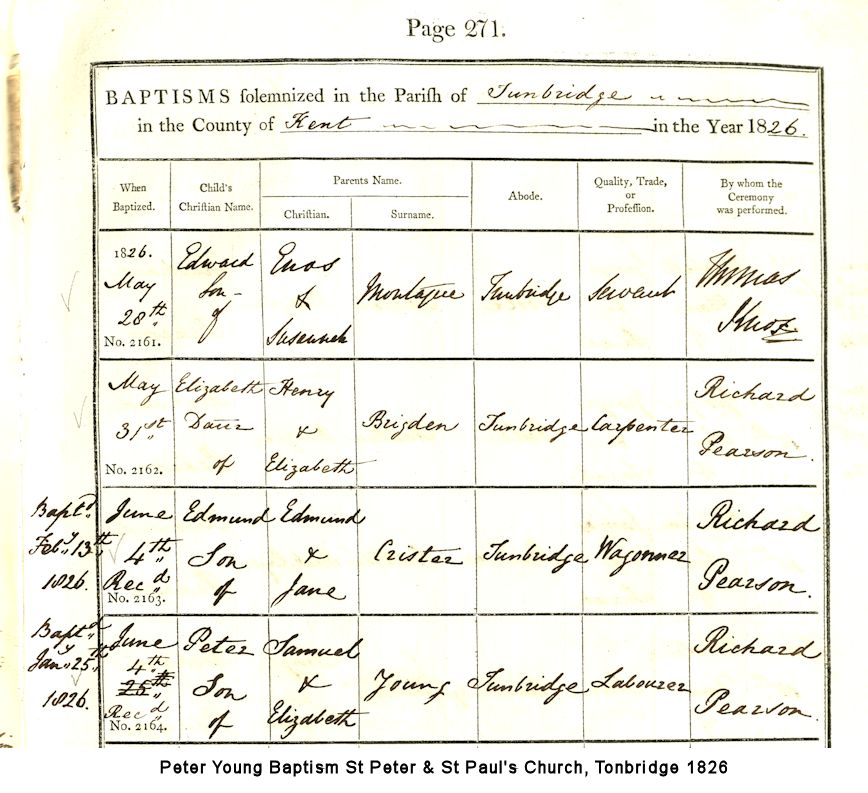 Page 271.
BAPTISMS solemnized in the Parish of Tunbridge
in the County of Kent in the Year 1826.
When Baptized. Child's Christian Name. Parents Name. Christian. Surname. Abode. Quality, Trade, or Profession. By whom the Ceremony was performed.
1826.
May
28th
No. 2161.
Edward
Son
of
Enos
&
Susannah
Montague
Tunbridge
Servant
Thomas
Knox
May
31st
No. 2162.
Elizabeth
Daur
of
Henry
&
Elizabeth
Brigden
Tunbridge
Carpenter
Richard
Pearson.
Baptd
Feby 13th
1826.
June
4th
Recd
No. 2163.
Edmund
Son
of
Edmund
&
Jane
Crister
Tunbridge
Wagonner
Richard
Pearson.
Baptd
Jany 25th
1826.
June
4th
25th
Recd
No. 2164.
Peter
Son
of
Samuel
&
Elizabeth
Young
Tunbridge
Labourer
Richard
Pearson.
Peter Young Baptism St Peter & St Paul's Church, Tonbridge 1826